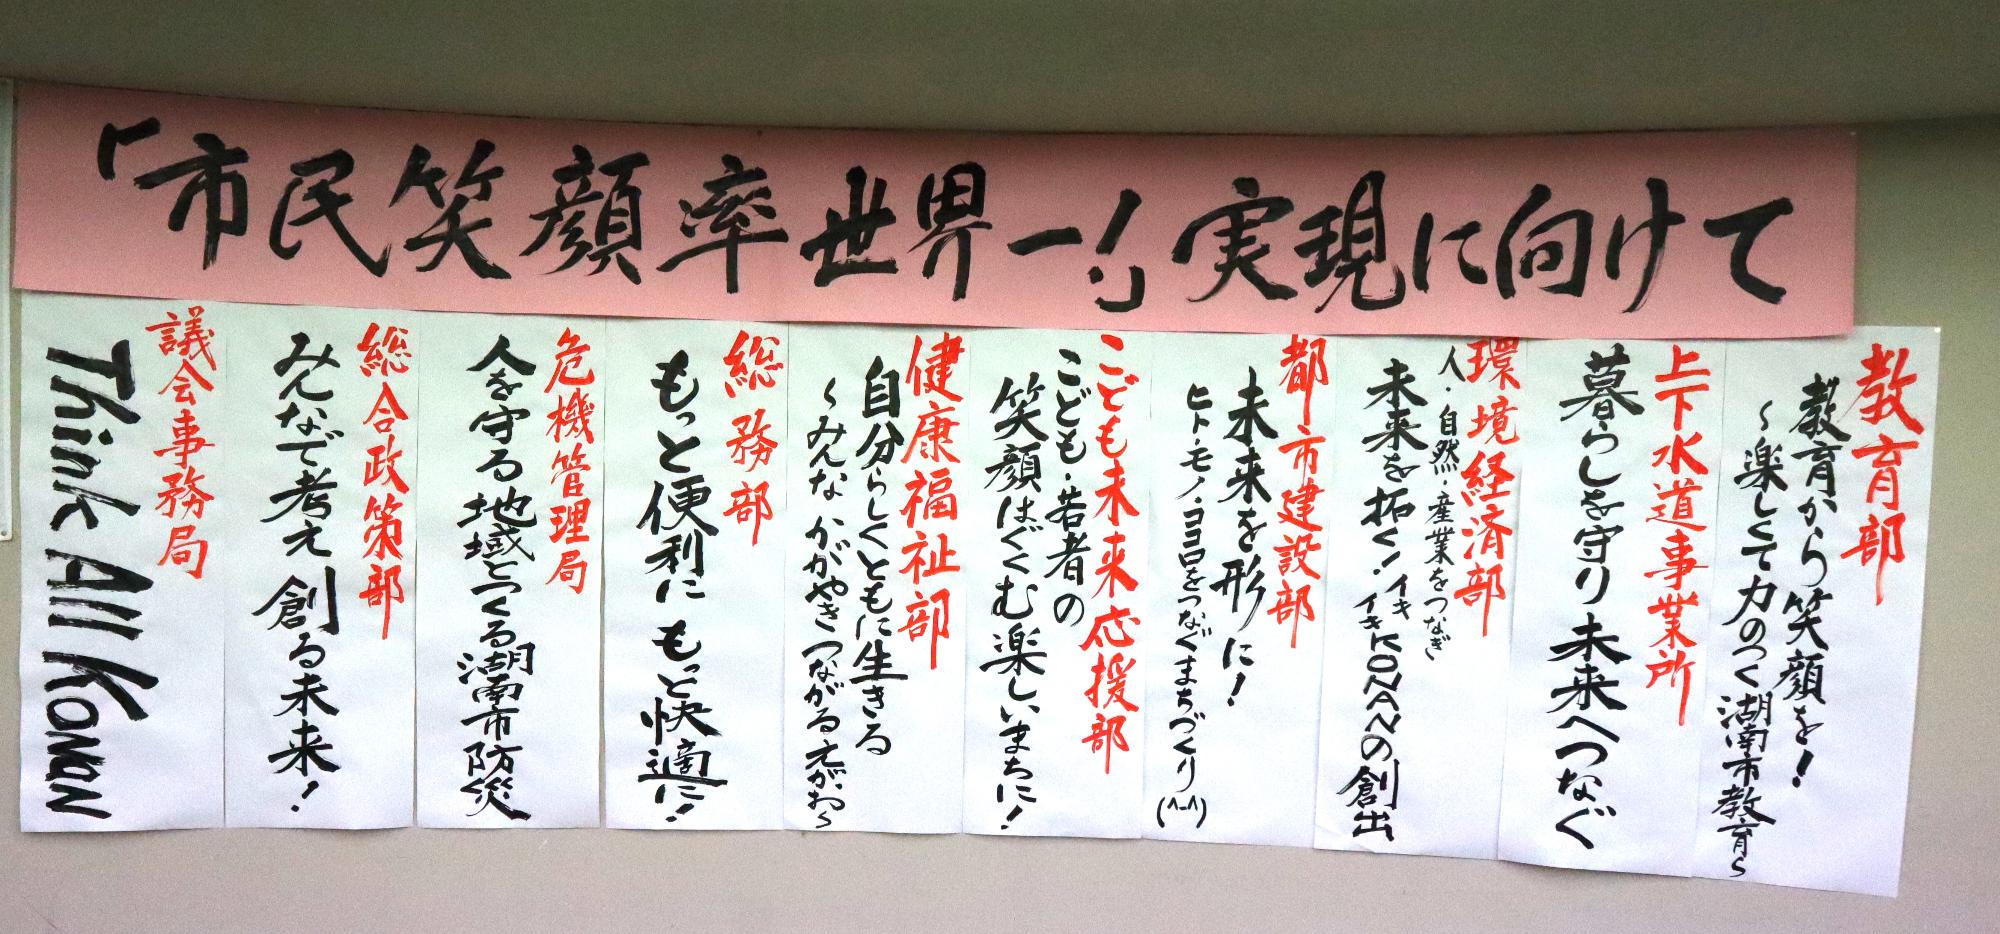 「市民笑顔率世界一!」実現に向けて
教育部
教育から笑顔を!
~楽しくて力のつく湖南市教育~
上下水道事業所
暮らしを守り未来へつなぐ
環境経済部
人・自然・産業をつなぎ
未来を拓く!イキイキKONANの創出
都市建設部
未来を形に!
ヒト・モノ・ココロをつなぐまちづくり(^-^)
こども未来応援部
こども・若者の
笑顔はぐくむ楽しいまちに!
健康福祉部
自分らしくともに生きる
~みんな かがやき つながる えがお~
総務部
もっと便利に もっと快適に!
危機管理局
人を守る 地域とつくる湖南市防災
総合政策部
みんなで考え 創る未来!
議会事務局
Think All KONAN